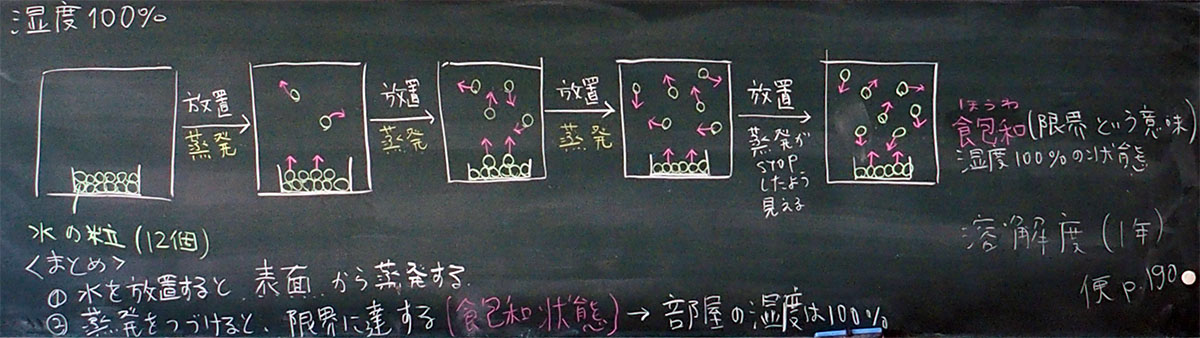 湿度100%
放置
蒸発
放置
蒸発
放置
蒸発
放置
蒸発が
STOP
したよう
見える
ほうわ
飽和(限界という意味)
湿度100%の状態
水の粒(12個)
溶解度(1年)
便p.190
<まとめ>
① 水を放置すると、表面から蒸発する
② 蒸発をつづけると、限界に達する(飽和状態)→部屋の湿度は100%